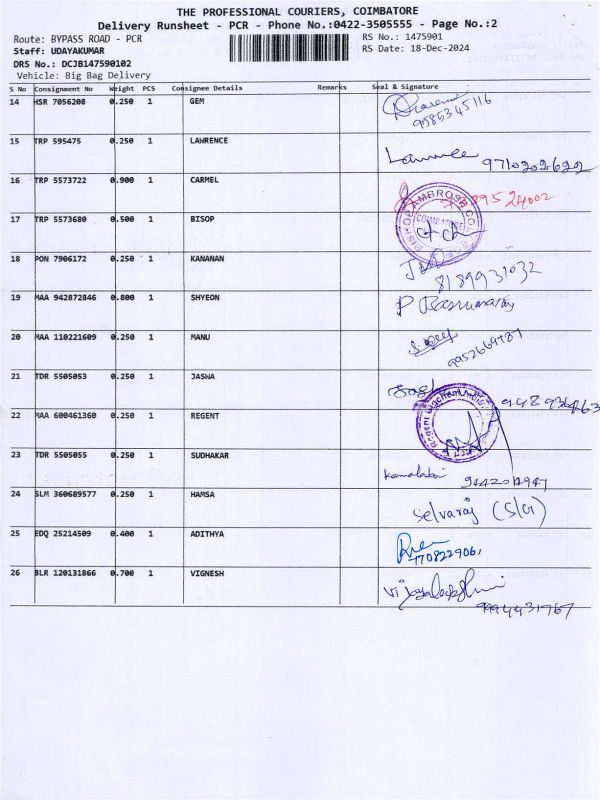 THE PROFESSIONAL COURIERS, COIMBATORE
Delivery Runsheet - PCR - Phone No.:0422-3505555 - Page No.:2
Route: BYPASS ROAD - PCR RS No.: 1475901
Staff: UDAYAKUMAR RS Date: 18-Dec-2024
DRS No.: DCJB147590102
Vehicle: Big Bag Delivery
S No Consignment No Weight PCS Consignee Details Remarks Seal & Signature
14 HSR 7056208 0.250 1 GEM
9585345116
15 TRP 595475 0.250 1 LAWRENCE
9710202622
16 TRP 5573722 0.900 1 CARMEL
17 TRP 5573680 0.500 1 BISOP
18 PON 7906172 0.250 1 KANANAN
8189931032
19 MAA 942872846 0.800 1 SHYEON
20 MAA 110221609 0.250 1 MANU
9952669787
21 TDR 5505053 0.250 1 JASWA
22 MAA 600461360 0.250 1 REGENT
23 TDR 5505055 0.250 1 SUDHAKAR
24 SLM 360689577 0.250 1 HAMSA
Selvaraj (S/G)
25 EDQ 25214509 0.400 1 ADITHYA
7708229061
26 BLR 120131866 0.700 1 VIGNESH
Vijayalakshmi
9994431767